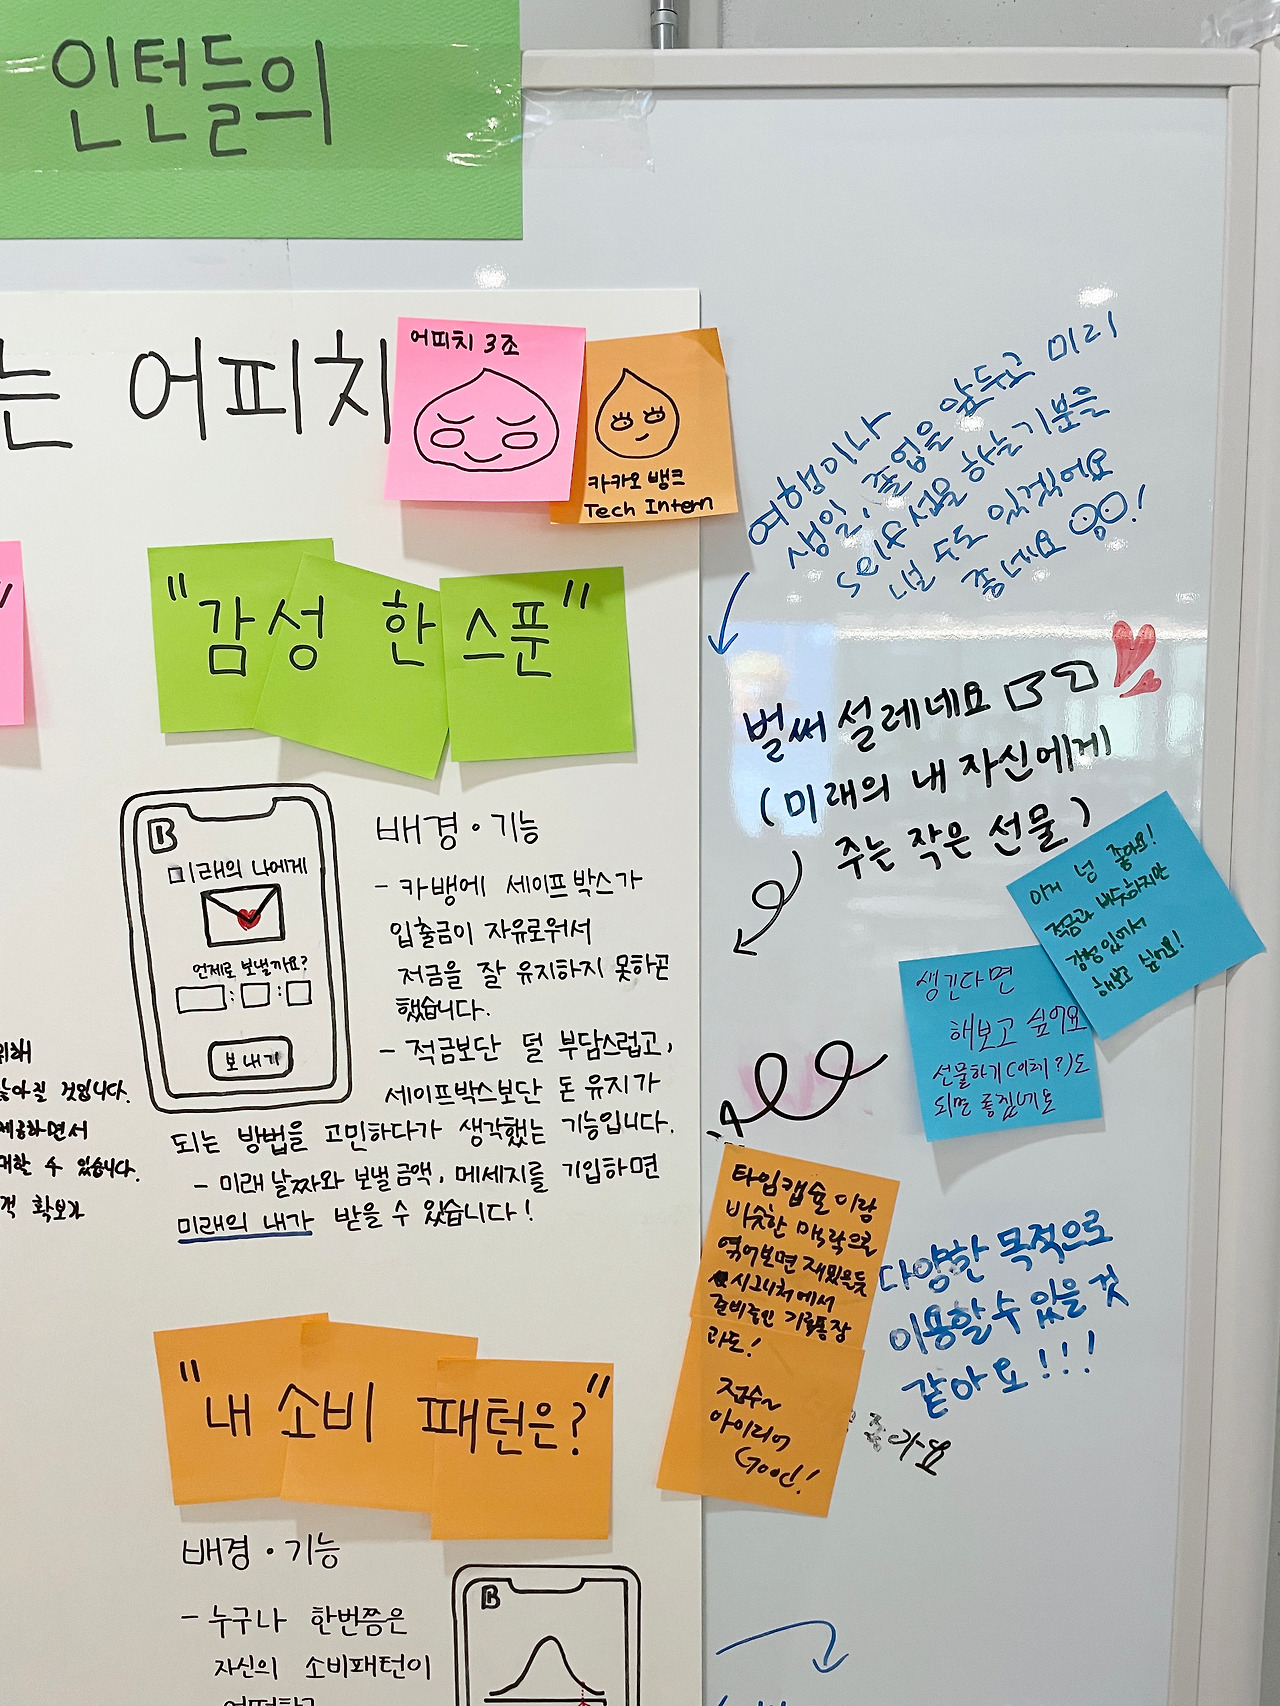 인턴들의
는 어피치
어피치 3조
카카오뱅크
Tech Intern
"감성 한 스푼"
B
미래의 나에게
언제로 보낼까요?
보내기
배경 · 기능
- 카뱅에 세이프박스가
입출금이 자유로워서
저금을 잘 유지하지 못하곤
했습니다.
- 적금보단 덜 부담스럽고,
세이프박스보단 돈 유지가
되는 방법을 고민하다가 생각했는 기능입니다.
- 미래 날짜와 보낼 금액, 메세지를 기입하면
미래의 내가 받을 수 있습니다!
위해
높아질 것입니다.
제공하면서
대할 수 있습니다.
적 확보가
"내 소비 패턴은?"
배경 · 기능
- 누구나 한번쯤은
자신의 소비패턴이
B
여행이나
생일, 졸업을 앞두고 미리
self 선물 하는 기분을
낼 수도 있겠어요
좋네요 !
벌써 설레네요
(미래의 내 자신에게
주는 작은 선물)
이거 넘 좋아요!
적금과 비슷하지만
감성있어서
해보고 싶어요!
생긴다면
해보고 싶어요
선물하기(이체?)도
되면 좋겠네요
타임캡슐이랑
비슷한 맥락으로
엮어보면 재밌을듯
시그니처에서
준비중인 기록통장
라도!
전수~
아이디어
Good!
다양한 목적으로
이용할 수 있을 것
같아요!!!